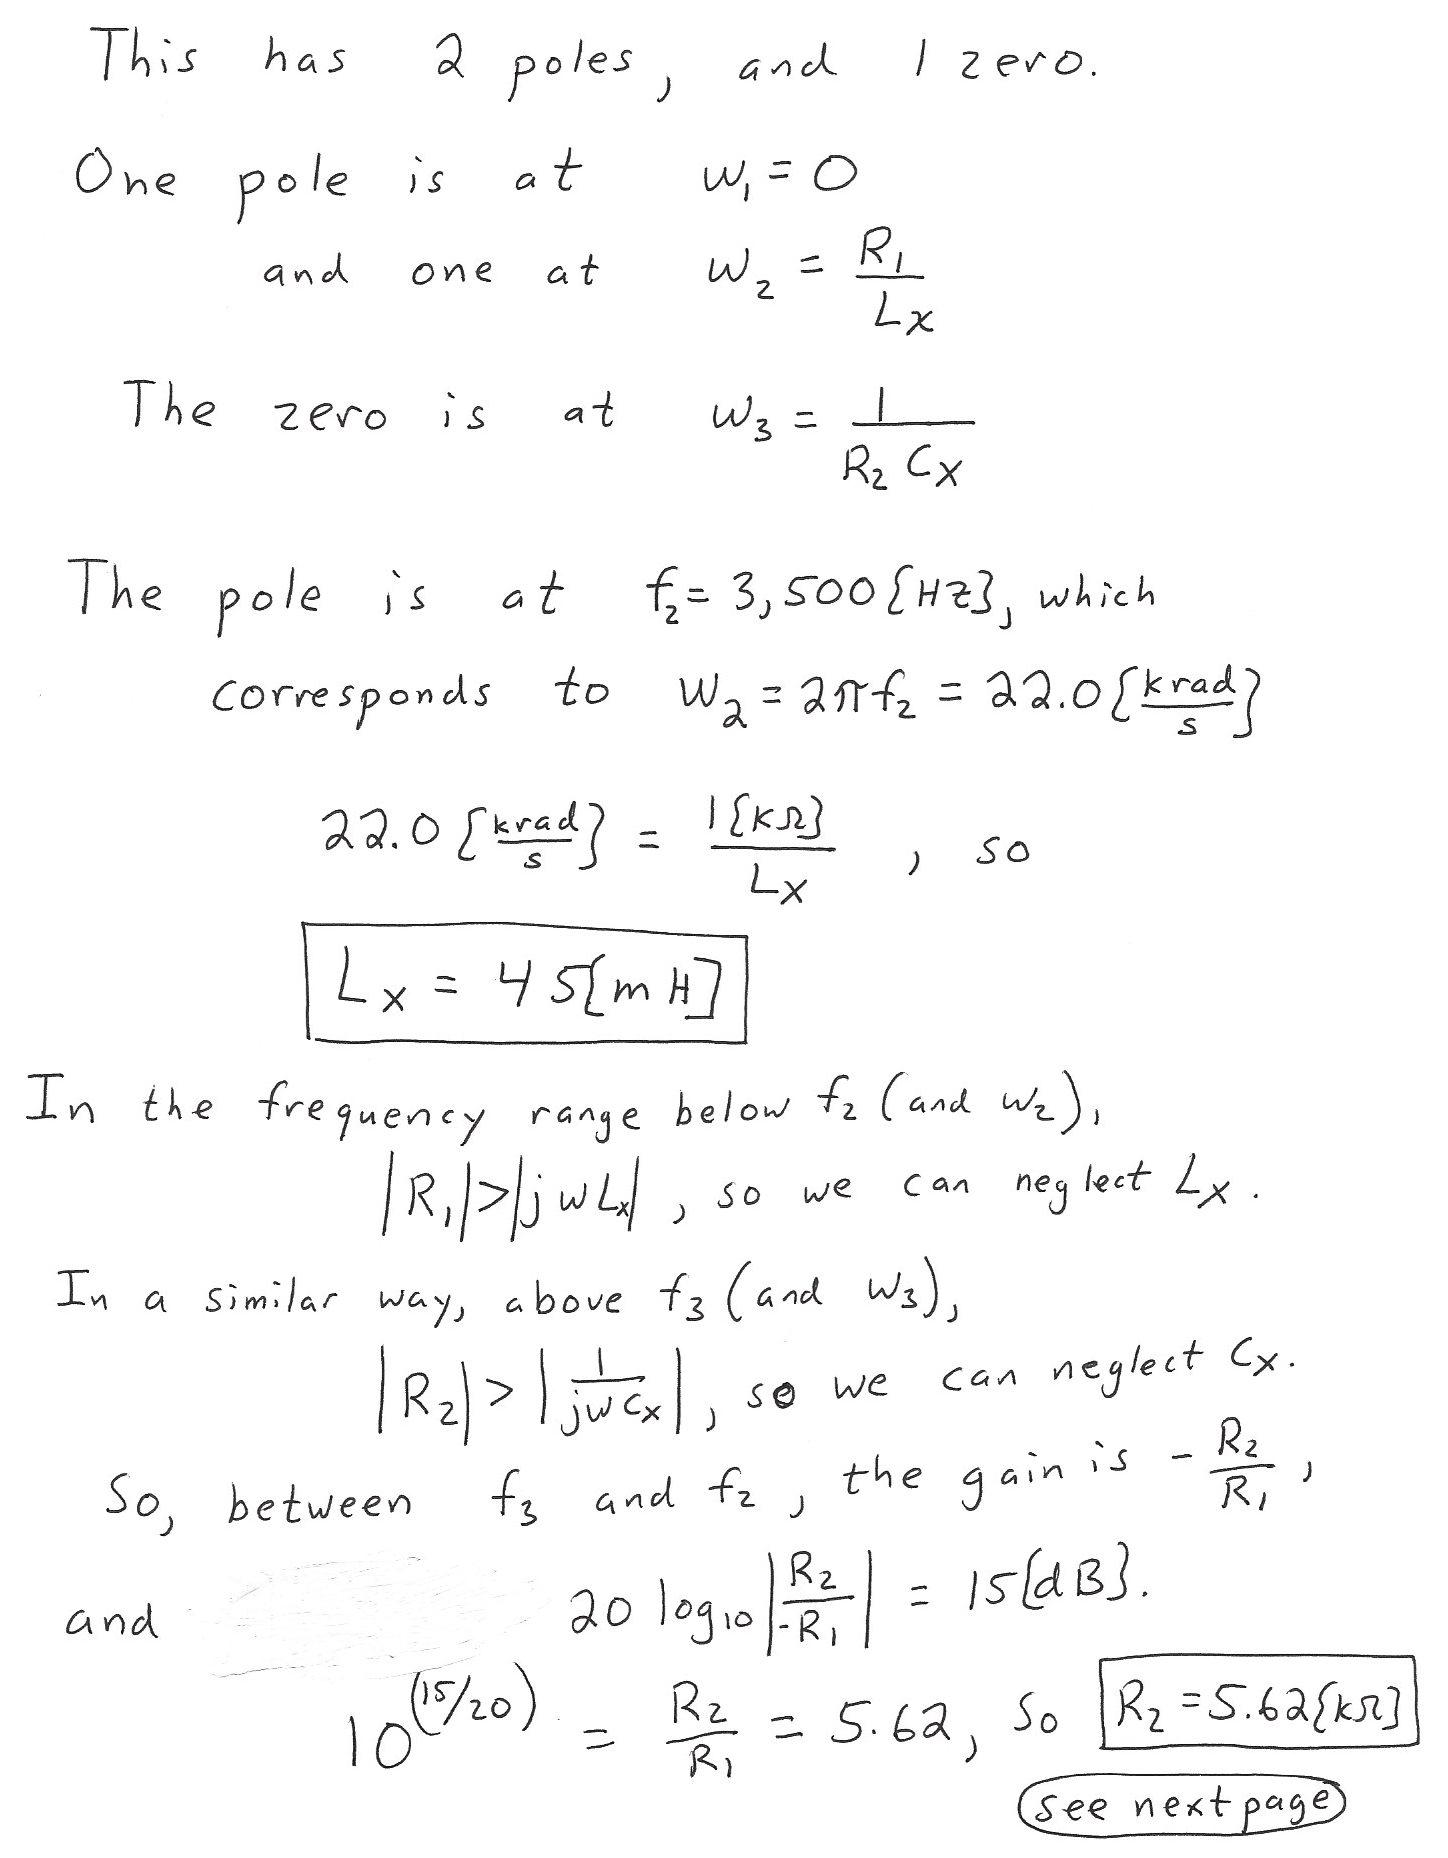 This has 2 poles, and 1 zero.
One pole is at w₁ = 0
and one at w₂ = R₁/Lx
The zero is at w₃ = 1/(R₂ Cx)
The pole is at f₂ = 3,500 [HZ], which
corresponds to w₂ = 2πf₂ = 22.0 [krad/s]
22.0 [krad/s] = 1[kΩ]/Lx , so
Lx = 45[mH]
In the frequency range below f₂ (and w₂),
|R₁| > |jwLx|, so we can neglect Lx.
In a similar way, above f₃ (and w₃),
|R₂| > |1/(jwCx)|, so we can neglect Cx.
So, between f₃ and f₂, the gain is - R₂/R₁,
and 20 log₁₀ |R₂/-R₁| = 15[dB].
10^(15/20) = R₂/R₁ = 5.62, so R₂ = 5.62[kΩ]
see next page